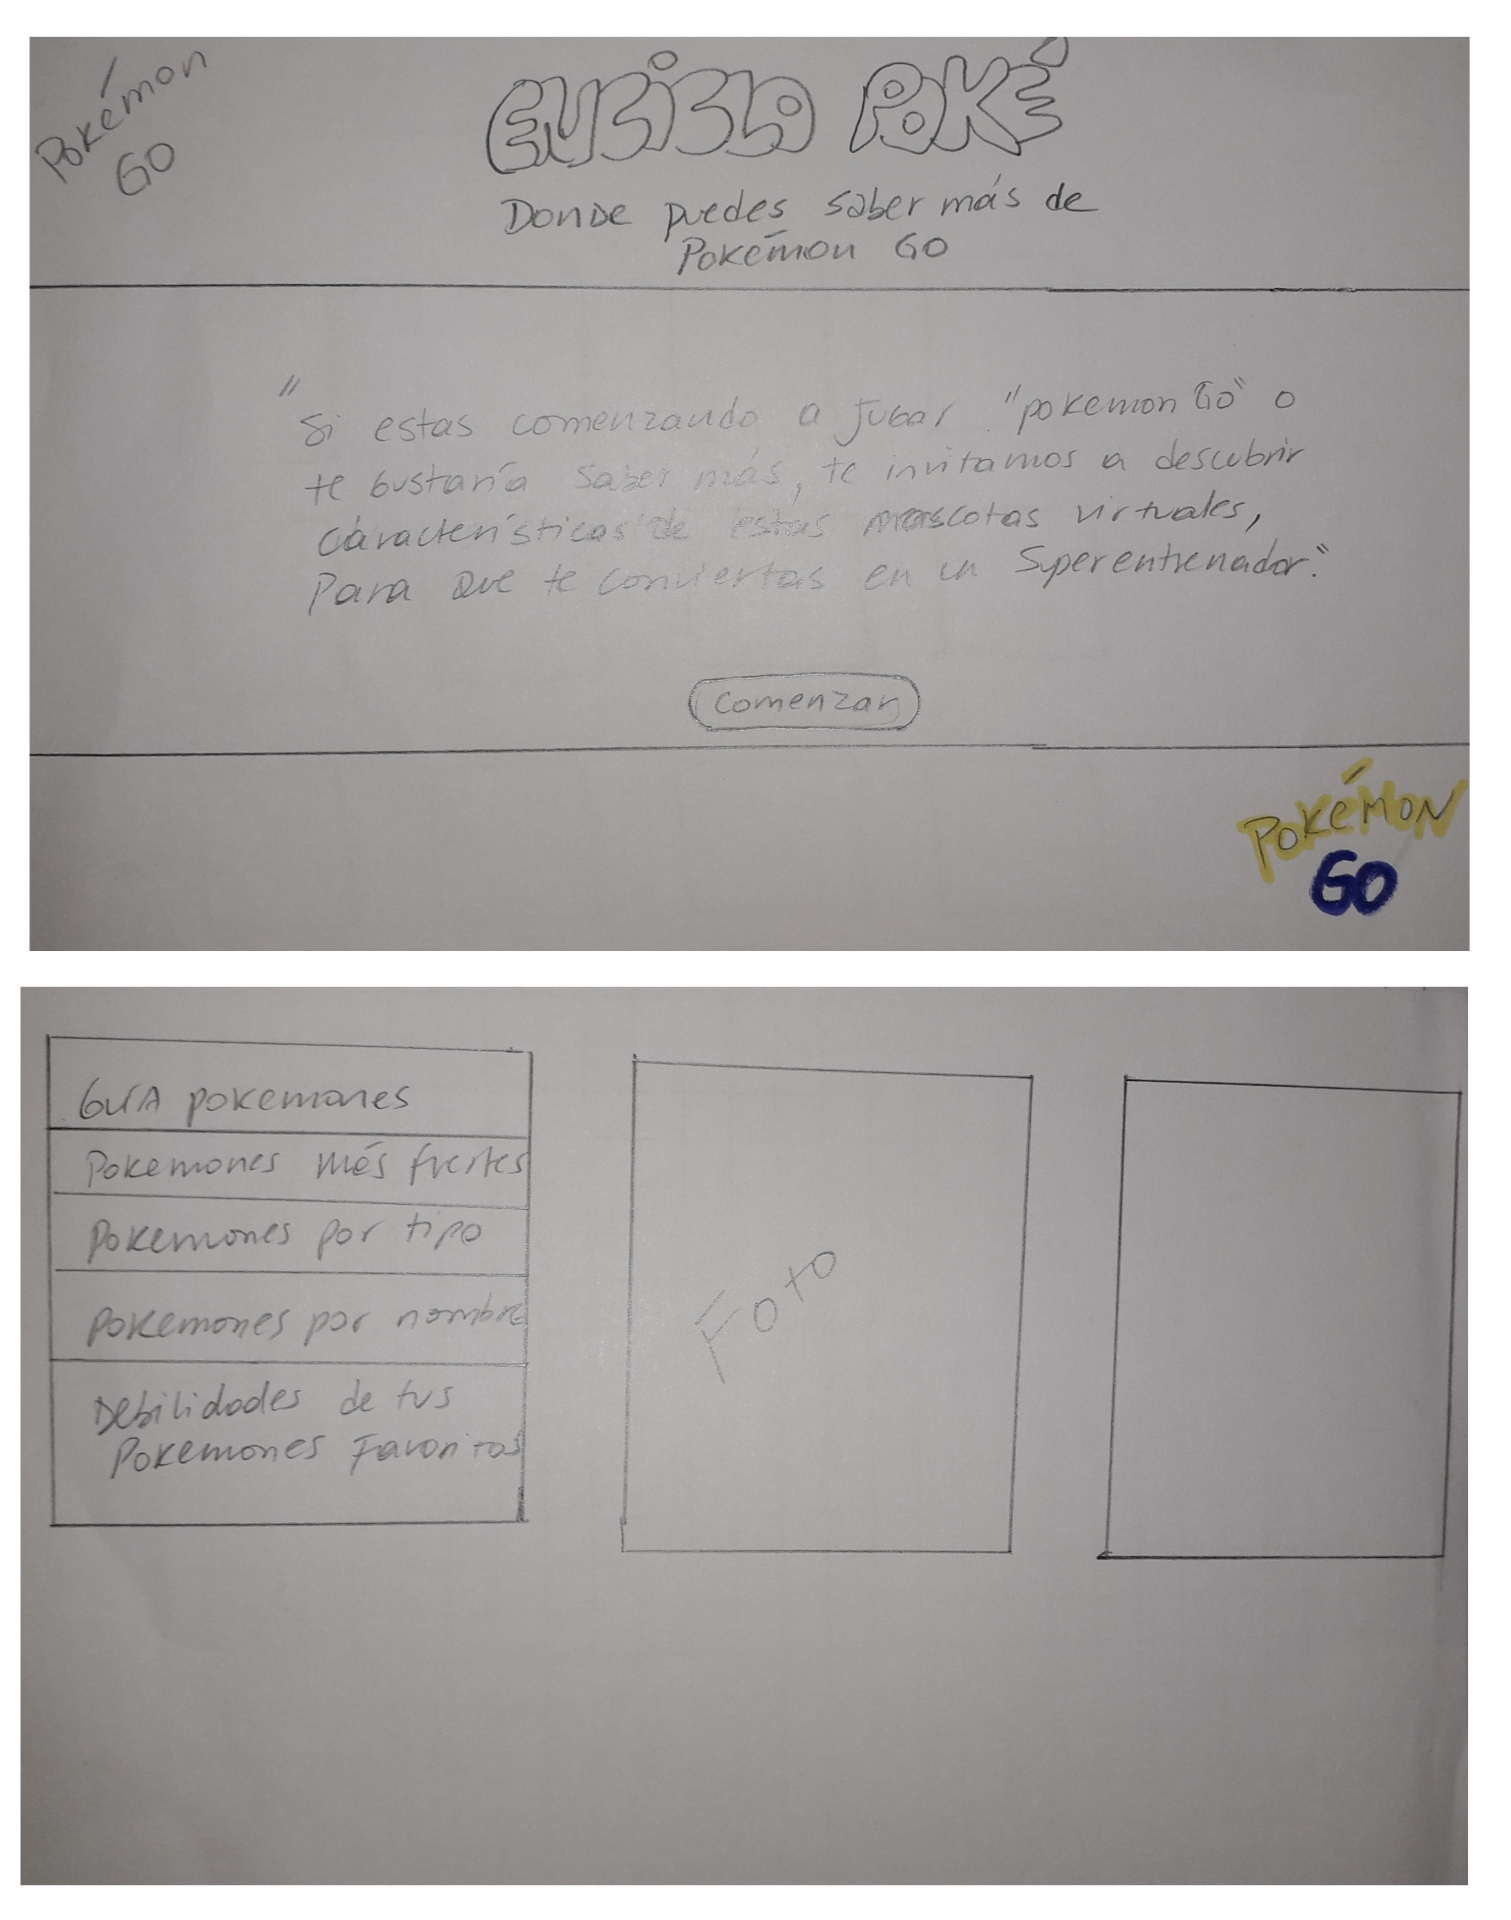 Pokémon
GO
ENCICLO POKÉ
Donde puedes saber más de
Pokémon GO
"
Si estas comenzando a jugar "pokemon Go" o
te gustaría saber más, te invitamos a descubrir
características de estas mascotas virtuales,
Para que te conviertas en un Superentrenador."
Comenzar
POKÉMON
GO
GUÍA pokemones
Pokemones más fuertes
Pokemones por tipo
Pokemones por nombre
Debilidades de tus
Pokemones Favoritos
Foto